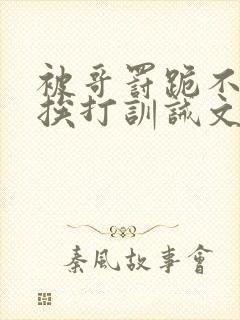 被哥罸跪不
挨打訓誡文
秦風故事會